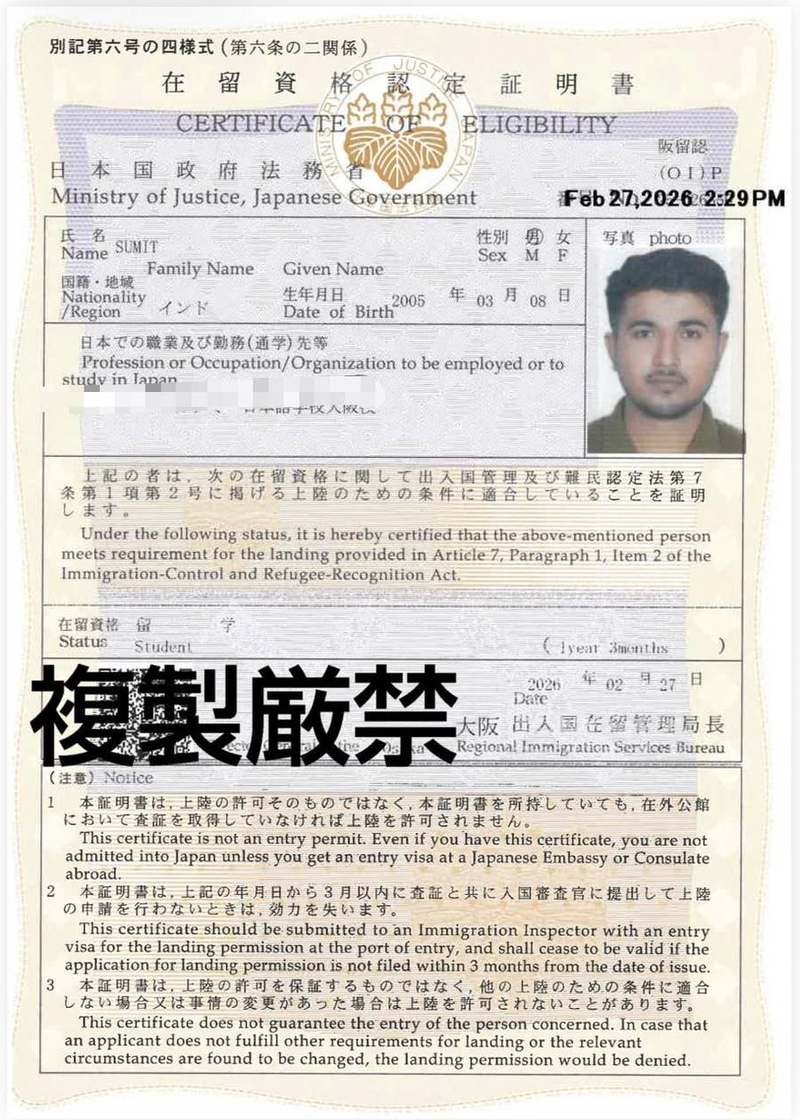 別記第六号の四様式(第六条の二関係)
在留資格認定証明書
CERTIFICATE OF ELIGIBILITY
MINISTRY OF JUSTICE JAPAN
阪留認
日本国政府法務省
(OI)P
Ministry of Justice, Japanese Government
Feb 27,2026 2:29PM
氏名
Name SUMIT
Family Name Given Name
性別 男 女
Sex M F
写真 photo
国籍・地域
Nationality
/Region インド
生年月日
Date of Birth 2005 年 03 月 08 日
日本での職業及び勤務(通学)先等
Profession or Occupation/Organization to be employed or to
study in Japan
日本語学校大阪校
上記の者は,次の在留資格に関して出入国管理及び難民認定法第7
条第1項第2号に掲げる上陸のための条件に適合していることを証明
します。
Under the following status, it is hereby certified that the above-mentioned person
meets requirement for the landing provided in Article 7, Paragraph 1, Item 2 of the
Immigration-Control and Refugee-Recognition Act.
在留資格 留 学
Status Student ( 1year 3months )
複製厳禁
2026 年 02 月 27 日
Date
大阪 出入国在留管理局長
the Osaka Regional Immigration Services Bureau
(注意) Notice
1 本証明書は,上陸の許可そのものではなく,本証明書を所持していても,在外公館
において査証を取得していなければ上陸を許可されません。
This certificate is not an entry permit. Even if you have this certificate, you are not
admitted into Japan unless you get an entry visa at a Japanese Embassy or Consulate
abroad.
2 本証明書は,上記の年月日から3月以内に査証と共に入国審査官に提出して上陸
の申請を行わないときは,効力を失います。
This certificate should be submitted to an Immigration Inspector with an entry
visa for the landing permission at the port of entry, and shall cease to be valid if the
application for landing permission is not filed within 3 months from the date of issue.
3 本証明書は,上陸の許可を保証するものではなく,他の上陸のための条件に適合
しない場合又は事情の変更があった場合は上陸を許可されないことがあります。
This certificate does not guarantee the entry of the person concerned. In case that
an applicant does not fulfill other requirements for landing or the relevant
circumstances are found to be changed, the landing permission would be denied.